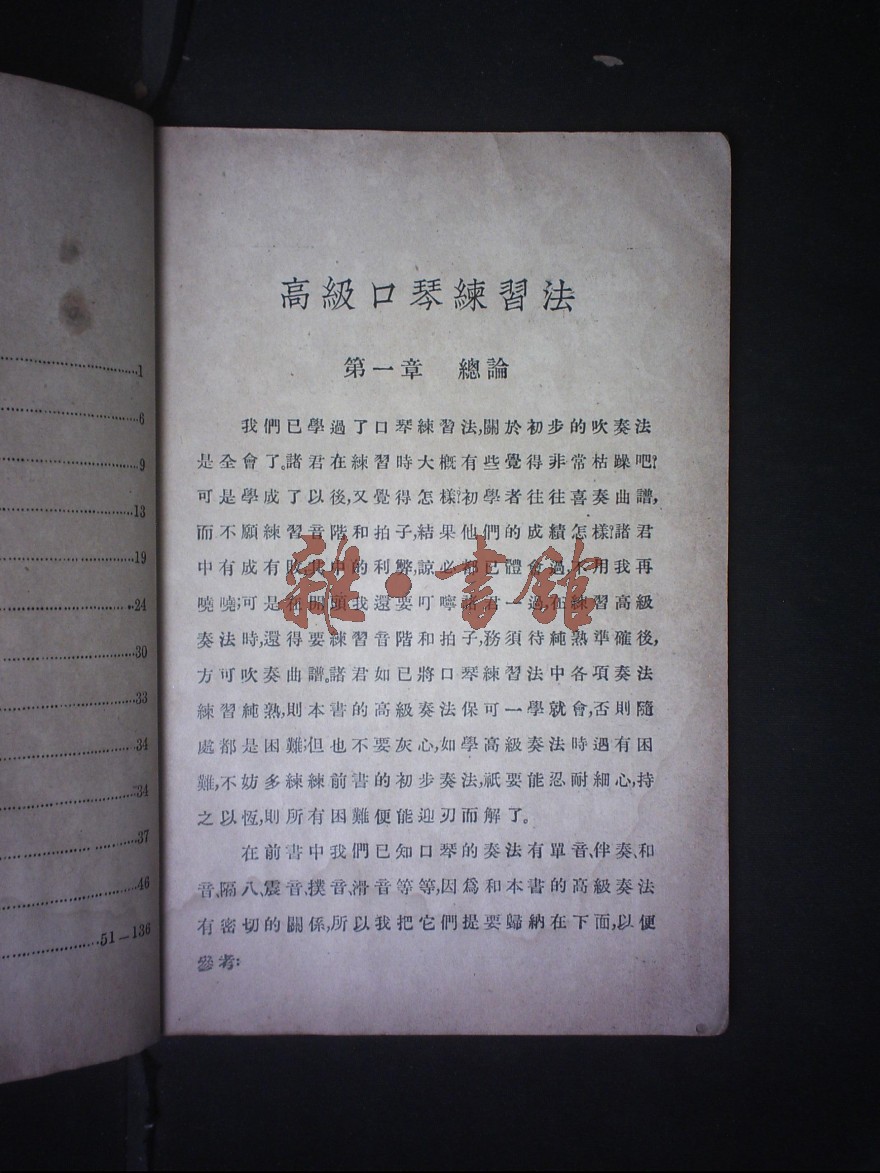 高級口琴練習法
第一章 總論
我們已學過了口琴練習法,關於初步的吹奏法
是全會了。諸君在練習時大概有些覺得非常枯躁吧?
可是學成了以後,又覺得怎樣?初學者往往喜奏曲譜,
而不願練習音階和拍子,結果他們的成績怎樣?諸君
中有成有敗,其中的利弊,諒必都已體會過,不用我再
嘵嘵;可是在開頭我還要叮嚀諸君一過,在練習高級
奏法時,還得要練習音階和拍子,務須待純熟準確後,
方可吹奏曲譜。諸君如已將口琴練習法中各項奏法
練習純熟,則本書的高級奏法保可一學就會,否則隨
處都是困難;但也不要灰心,如學高級奏法時遇有困
難,不妨多練練前書的初步奏法,祇要能忍耐細心,持
之以恆,則所有困難便能迎刃而解了。
在前書中我們已知口琴的奏法有單音、伴奏、和
音、隔八、震音、撲音、滑音等等,因爲和本書的高級奏法
有密切的關係,所以我把它們提要歸納在下面,以便
參考:
雜·書館
1
6
9
13
19
24
30
33
34
34
37
46
51—136